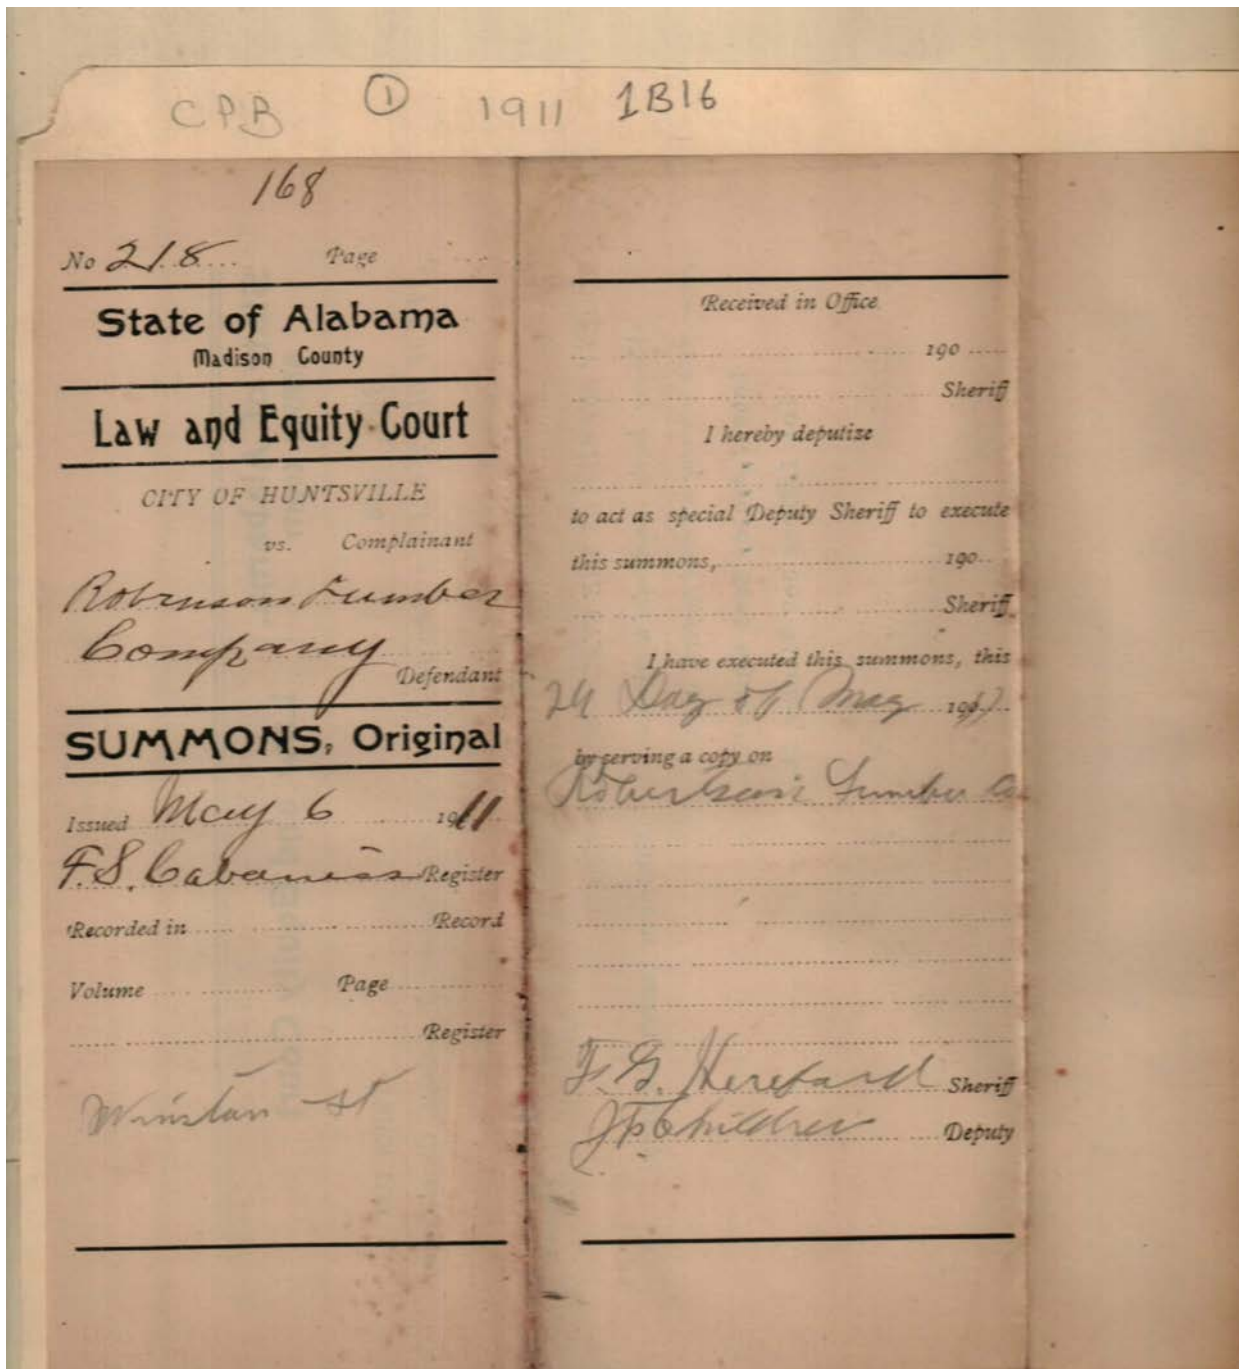 CPB ① 1911 1B16
168
No 218 Page
State of Alabama
Madison County
Law and Equity Court
CITY OF HUNTSVILLE
vs. Complainant
Robinson Lumber
Company
Defendant
SUMMONS, Original
Issued May 6 1911
F.S. Cabaniss Register
Recorded in Record
Volume Page
Register
Winston st
Received in Office
190
Sheriff
I hereby deputize
to act as special Deputy Sheriff to execute
this summons, 190
Sheriff
I have executed this summons, this
24 Day of May 190
by serving a copy on
Robertson Lumber Co
F. G. Hereford Sheriff
Childress Deputy